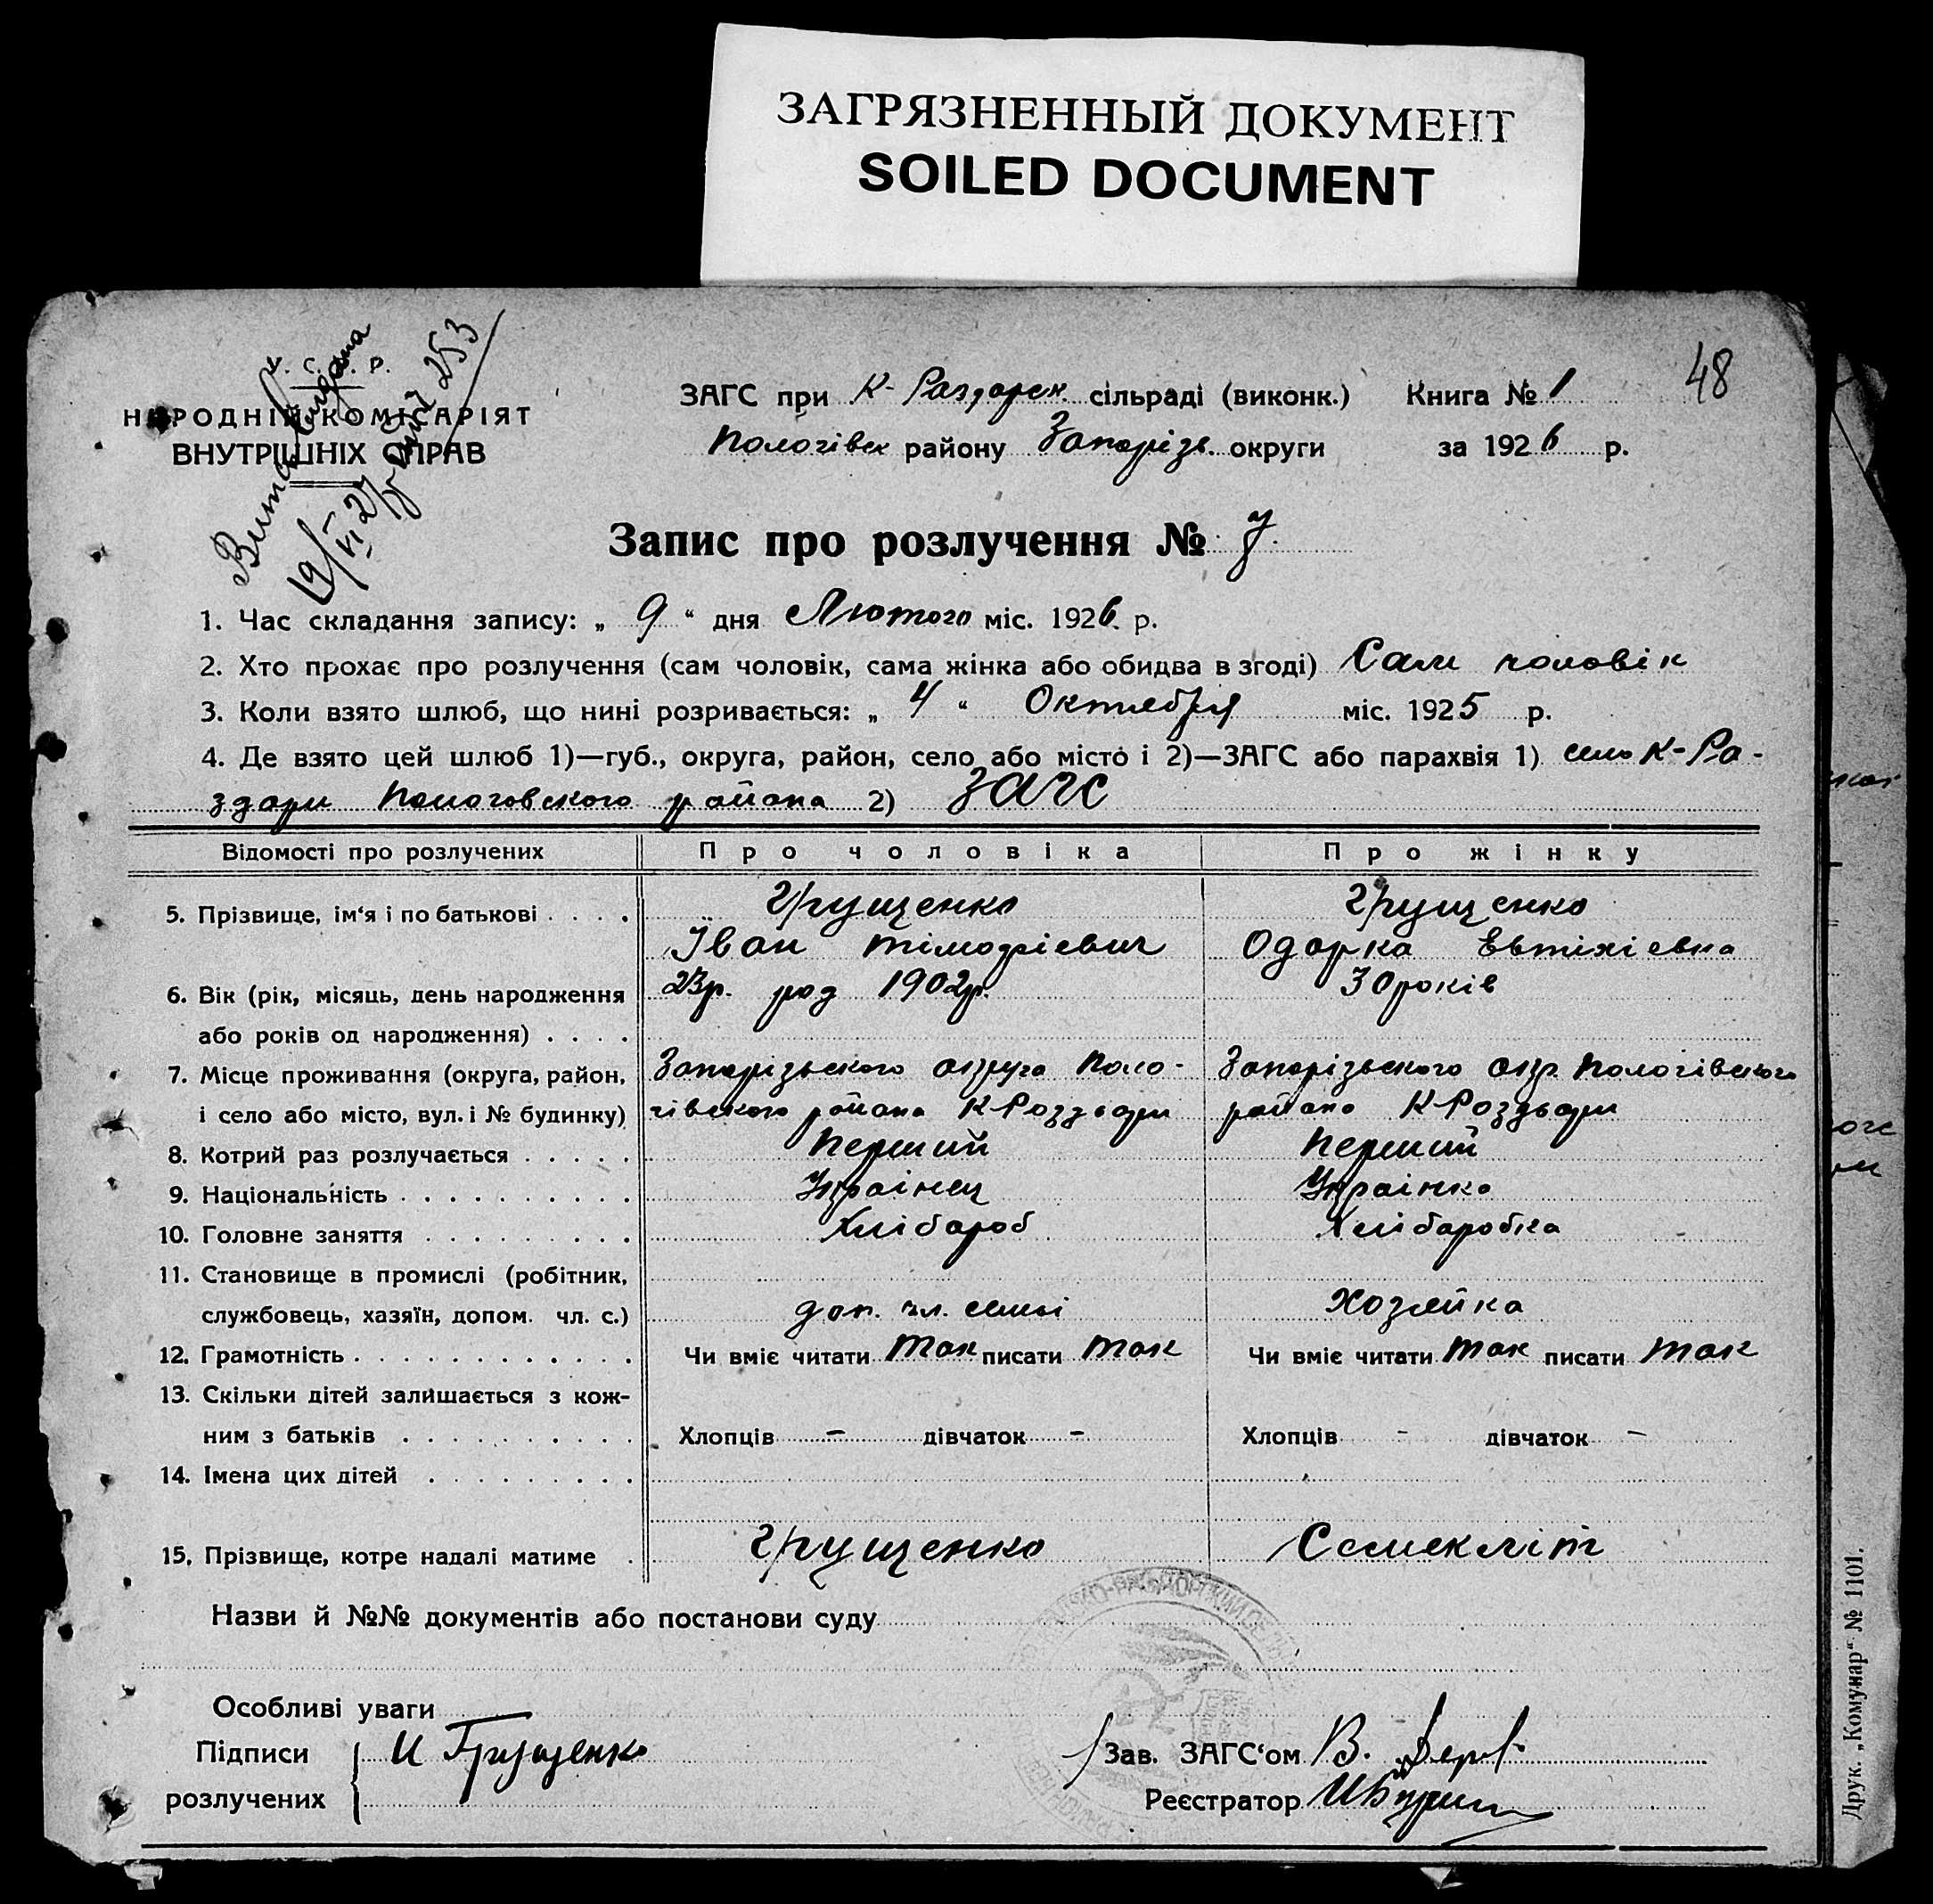 ЗАГРЯЗНЕННЫЙ ДОКУМЕНТ
SOILED DOCUMENT
48
У. С. Р. Р.
НАРОДНІЙ КОМІСАРІЯТ
ВНУТРІШНІХ СПРАВ
19/VI 27
253
ЗАГС при К-Раздорск. сільраді (виконк.) Книга № 1
Пологівск району Запорізь. округи за 1926 р.
Запис про розлучення № 7.
1. Час складання запису: „ 9 “ дня Лютого міс. 1926. р.
2. Хто прохає про розлучення (сам чоловік, сама жінка або обидва в згоді) Сам чоловік
3. Коли взято шлюб, що нині розривається: „ 4 “ Октября міс. 1925 р.
4. Де взято цей шлюб 1)—губ., округа, район, село або місто і 2)—ЗАГС або парахвія 1) село К-Ра-
здори Пологовского района 2) ЗАГС
Відомості про розлучених Про чоловіка Про жінку
5. Прізвище, ім‘я і по батькові . . . . Грущенко Грущенко
Іван Тімофіевич Одарка Евтіхіевна
6. Вік (рік, місяць, день народження 23р. род 1902р. 30 років
або років од народження) . . . .
7. Місце проживання (округа, район, Запорізьского округа Поло- Запорізьского окр. Пологівского
і село або місто, вул. і № будинку) гівского района К-Роздьори района К-Роздьори
8. Котрий раз розлучається . . . . . Перший Перший
9. Національність . . . . . . . . . . Украінец Украінка
10. Головне заняття . . . . . . . . . Хлібароб Хлібаробка
11. Становище в промислі (робітник,
службовець, хазяїн, допом. чл. с.) доп. чл. семьі Хозяйка
12. Грамотність . . . . . . . . . . . . Чи вміє читати Так писати Так Чи вміє читати Так писати Так
13. Скільки дітей залишається з кож-
ним з батьків . . . . . . . . . . Хлопців – дівчаток – Хлопців – дівчаток –
14. Імена цих дітей . . . . . . . . .
15. Прізвище, котре надалі матиме . Грущенко Семекліт
Назви й №№ документів або постанови суду
Особливі уваги
Підписи И Грущенко Зав. ЗАГС‘ом В.
розлучених Реєстратор
Друк. „Комунар“ № 1101.